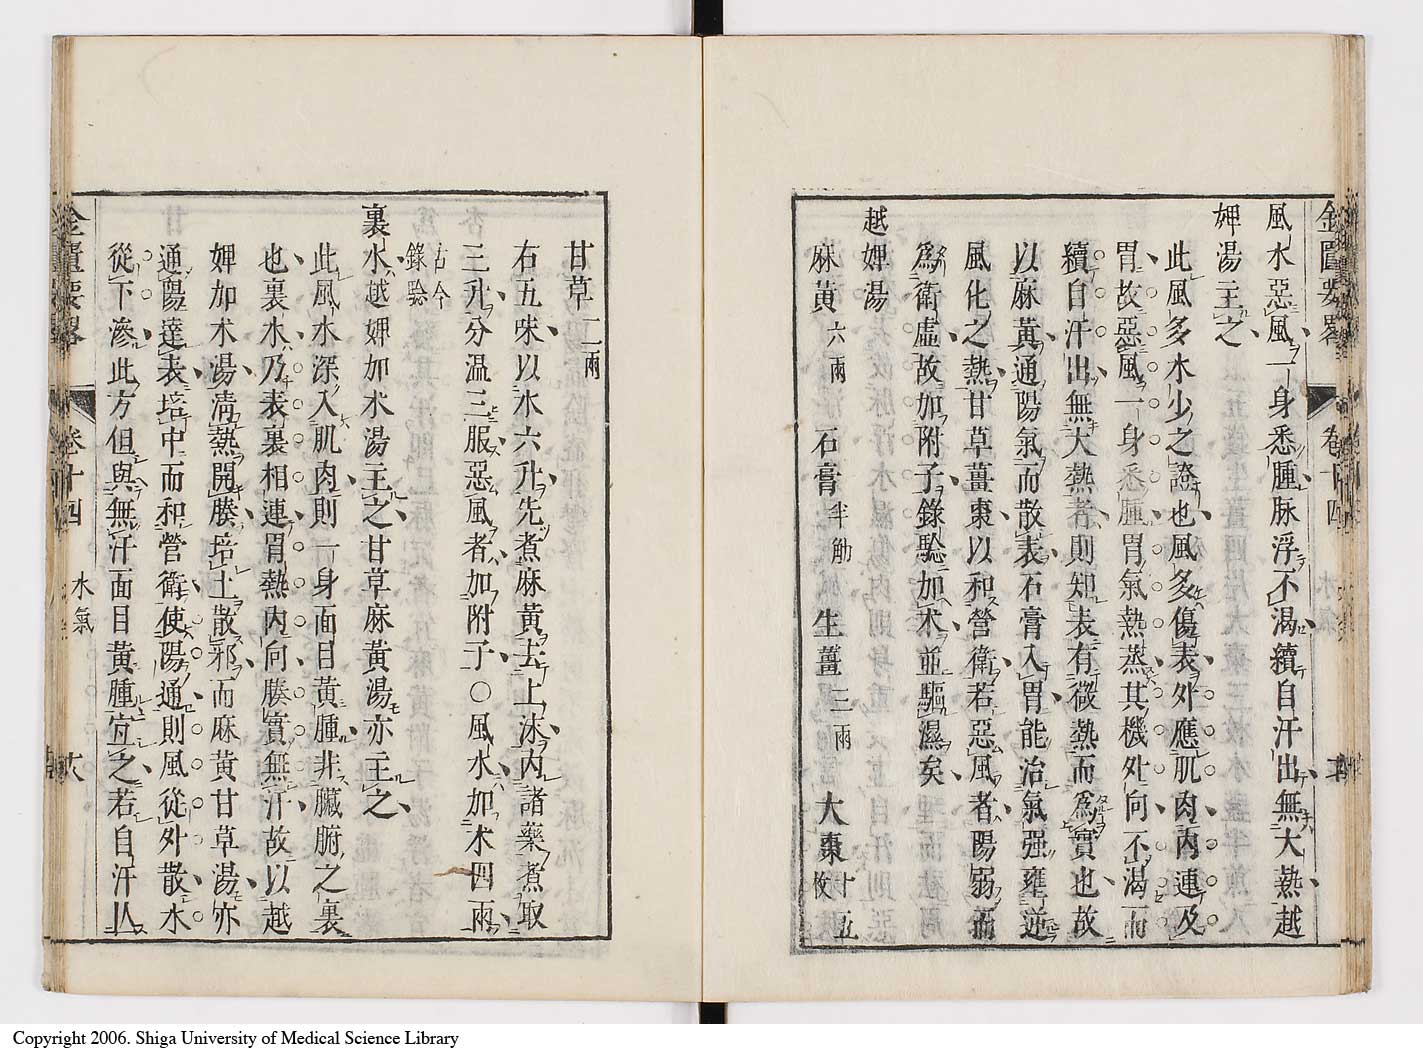 金匱要畧 卷十四 水氣
風水惡風一身悉腫脉浮不渴續自汗出無大熱越
婢湯主之
此風多水少之證也風多傷表外應肌肉內連及
胃故惡風一身悉腫胃氣熱蒸其機外向不渴而
續自汗出無大熱者則知表有微熱而為實也故
以麻黃通陽氣而散表石膏入胃能治氣强壅逆
風化之熱甘草薑棗以和營衛若惡風者陽弱而
為衛虛故加附子錄驗加朮並驅濕矣
越婢湯
麻黃六兩 石膏半觔 生薑三兩 大棗十五枚
甘草二兩
右五味以水六升先煮麻黃去上沫內諸藥煮取
三升分温三服惡風者加附子○風水加朮四兩
古今錄驗
裏水越婢加朮湯主之甘草麻黃湯亦主之
此風水深入肌肉則一身面目黃腫非臟腑之裏
也裏水乃表裏相連胃熱內向腠實無汗故以越
婢加朮湯清熱開腠培土散邪而麻黃甘草湯亦
通陽達表培中而和營衛使陽通則風從外散水
從下滲此方但與無汗面目黃腫宜之若自汗乆
金匱要畧 卷十四 水氣 十六
Copyright 2006. Shiga University of Medical Science Library